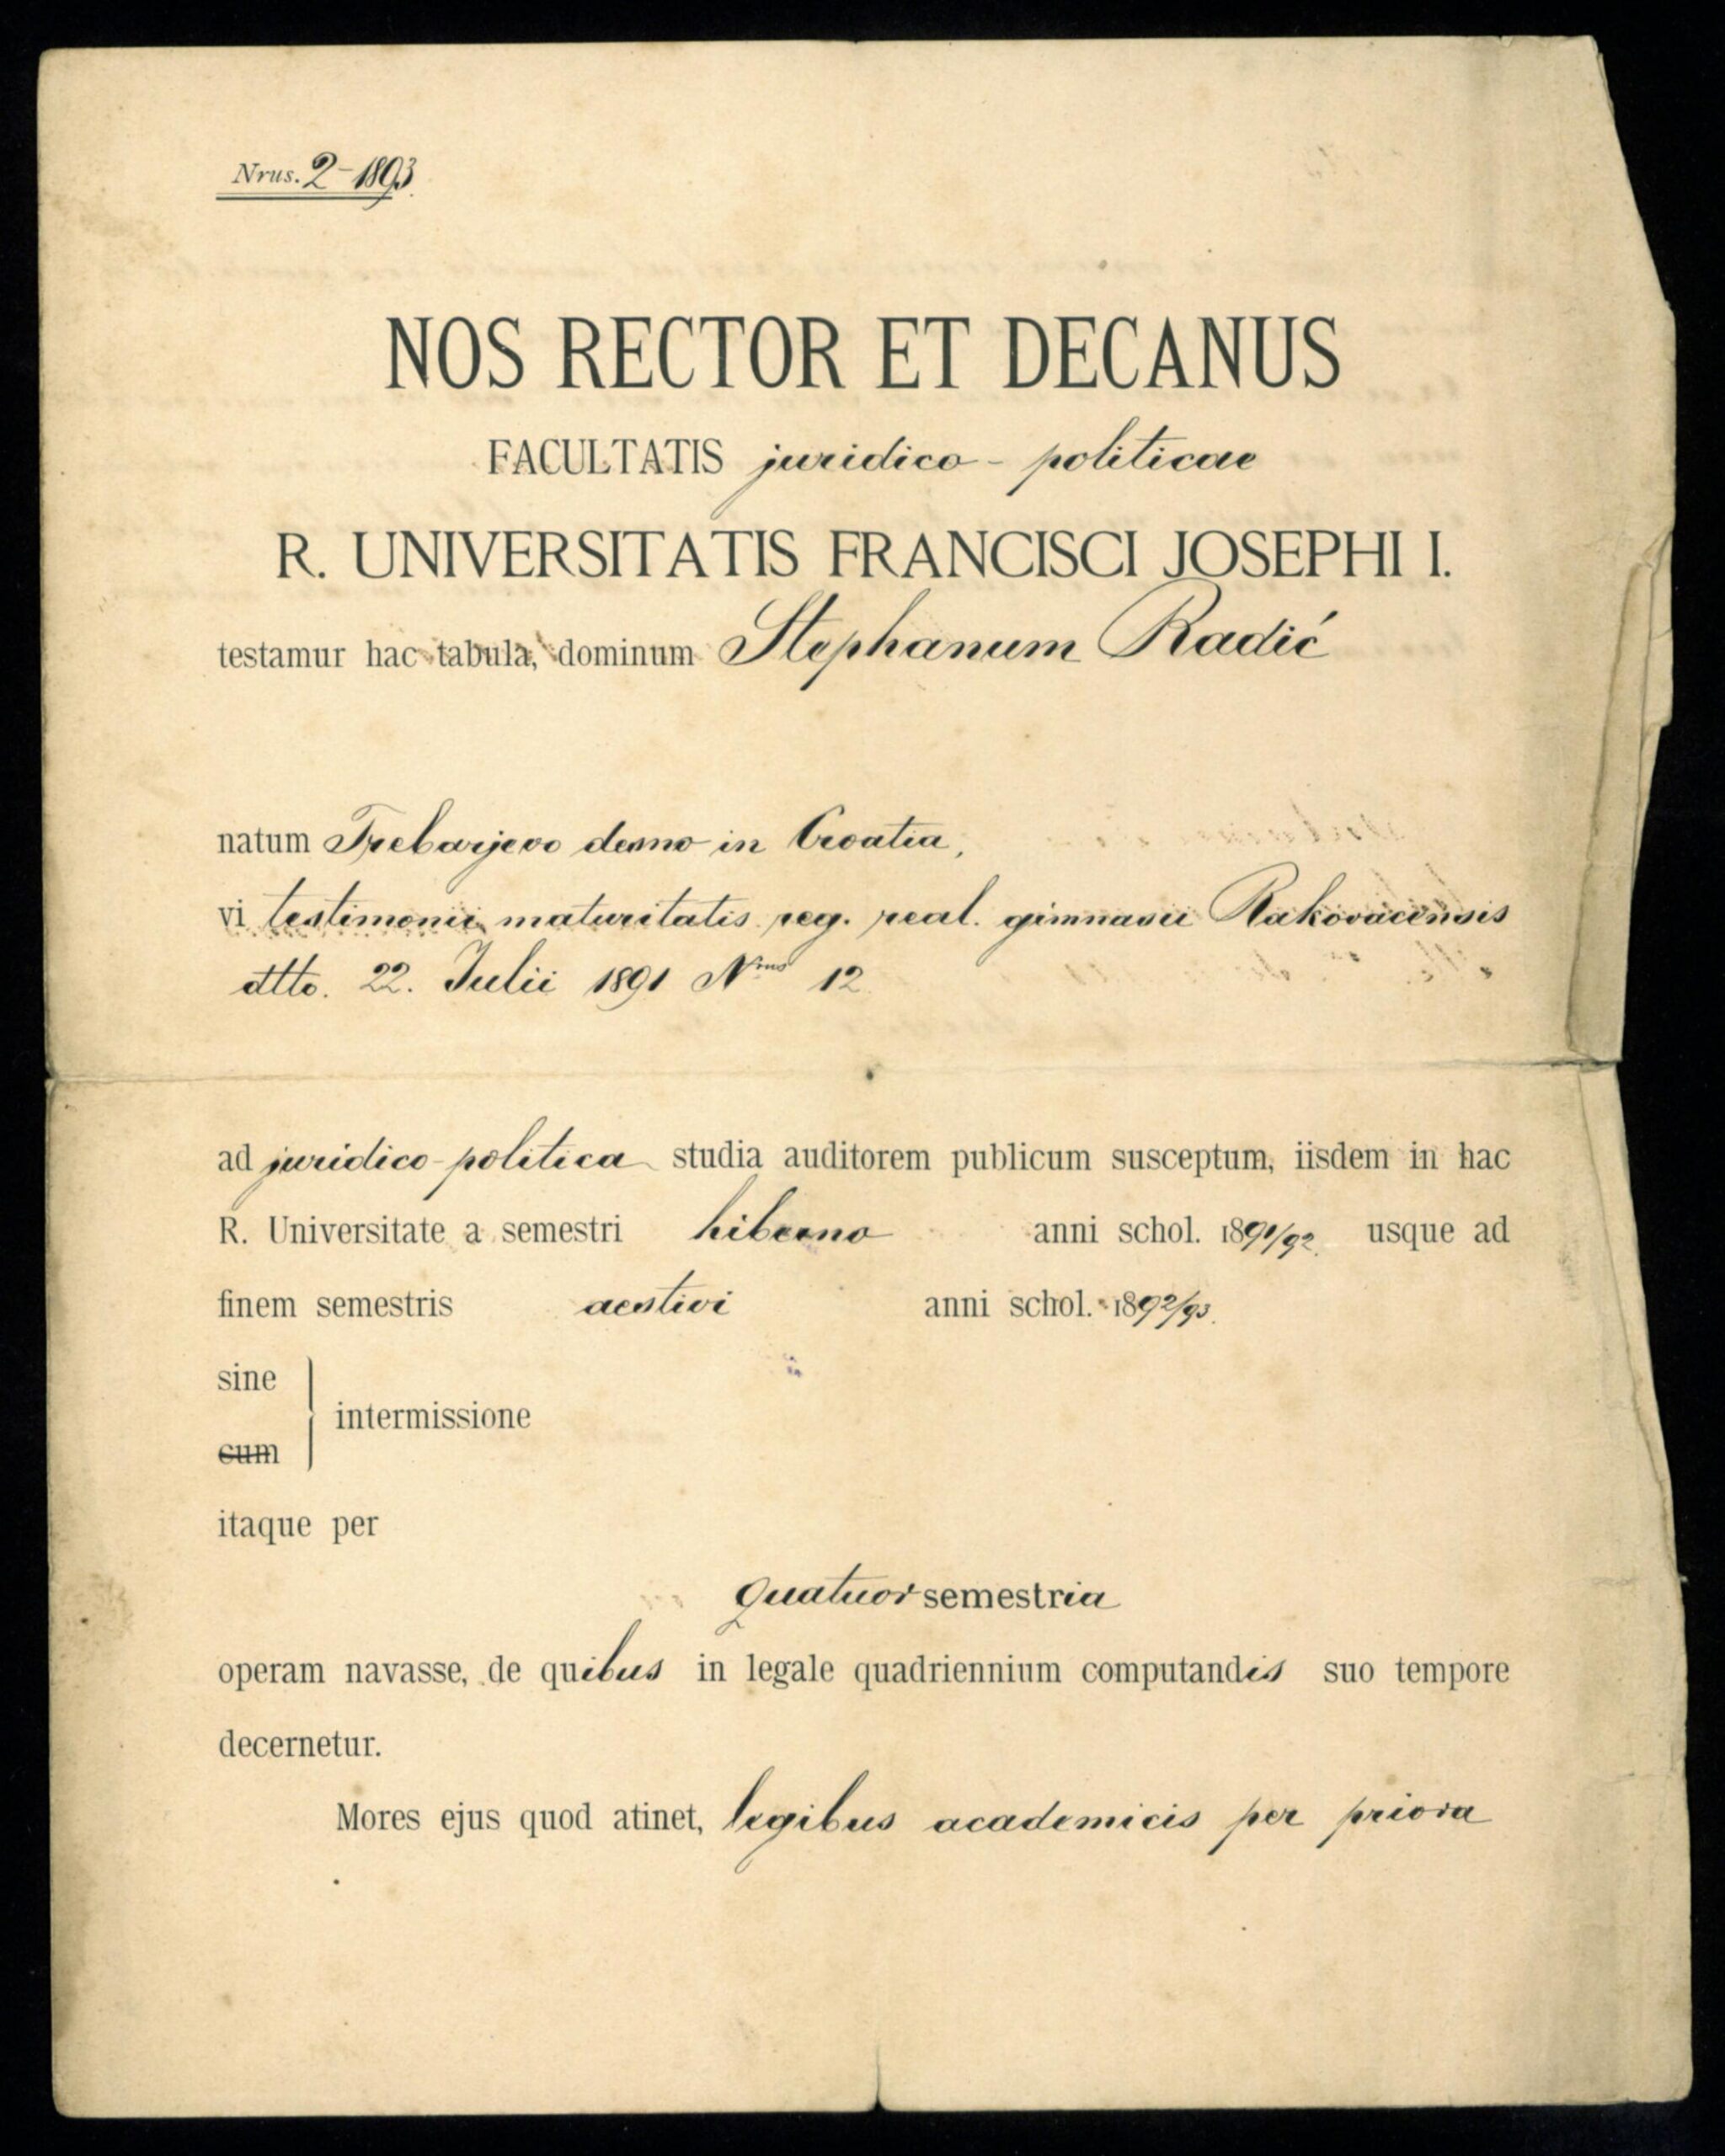 Nrus. 2-1893.
NOS RECTOR ET DECANUS
FACULTATIS juridico-politicae
R. UNIVERSITATIS FRANCISCI JOSEPHI I.
testamur hac tabula, dominum Stephanum Radić
natum Trebarjevo desno in Croatia,
vi testimonii maturitatis reg. real. gimnasii Rakovacensis
dtto. 22. Julii 1891 Nrus 12
ad juridico-politica studia auditorem publicum susceptum, iisdem in hac
R. Universitate a semestri hiberno anni schol. 1891/92. usque ad
finem semestris aestivi anni schol. 1892/93.
sine
intermissione
cum
itaque per
quatuor semestria
operam navasse, de quibus in legale quadriennium computandis suo tempore
decernetur.
Mores ejus quod atinet, legibus academicis per priora